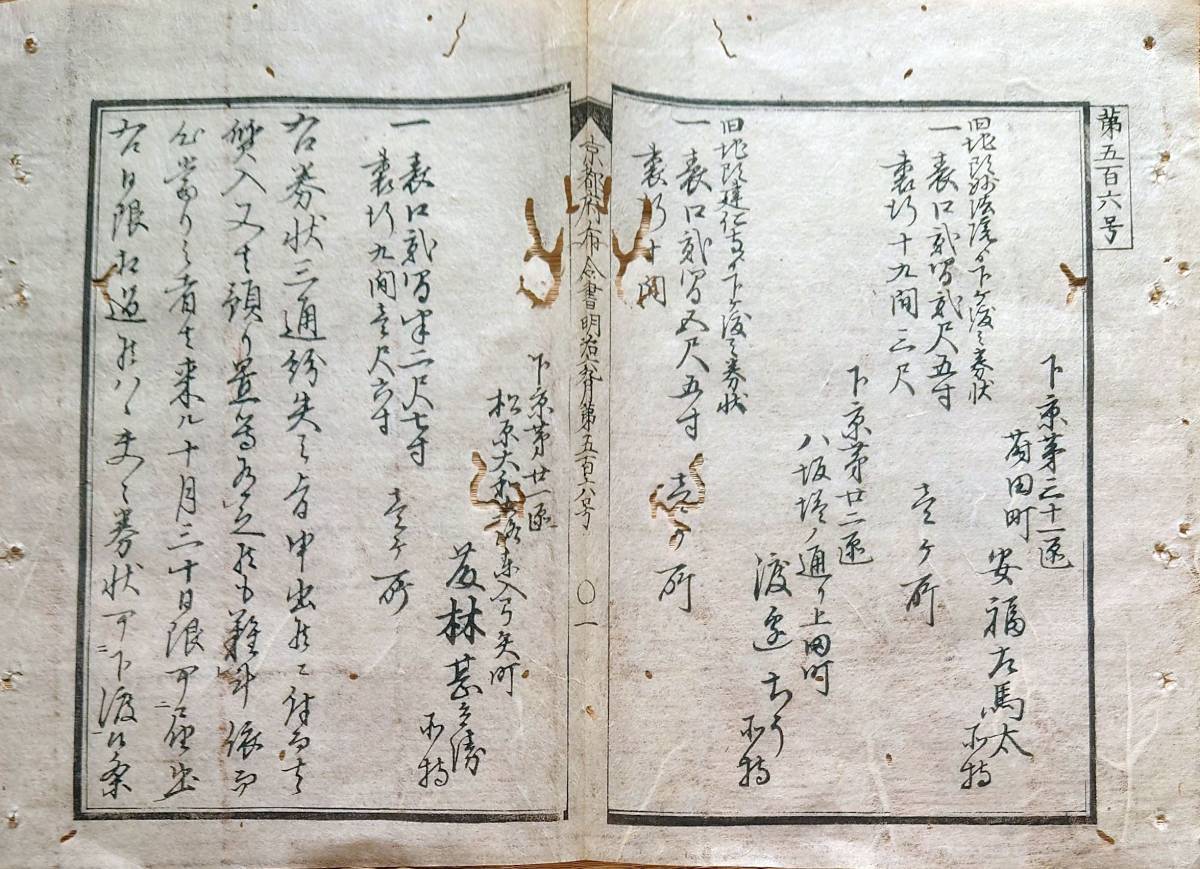 第五百六号
下京第三十一区
蒔田町 安福左馬太
所持
旧地所妙法院ゟ下ケ渡之券状
一 表口弐間弐尺五寸
裏行十九間三尺 壱ヶ所
下京第廿二区
八坂塔ノ通リ上田町
渡邉
所持
旧地所建仁寺ゟ下ケ渡之券状
一 表口弐間五尺五寸
裏行十間 壱ヶ所
京都府布令書明治六年 月第五百六号 〇一
下京第廿一区
松原大和 路東入弓矢町
藤林甚三清
所持
一 表口弐間半二尺七寸
裏行九間壱尺六寸 壱ヶ所
右券状三通紛失之旨申出候ニ付而者
質入又者預リ置等有之候も難斗依而
心当り之者者来ル十月三十日限可届出
右日限相過候ハヽ更ニ券状可下渡候条